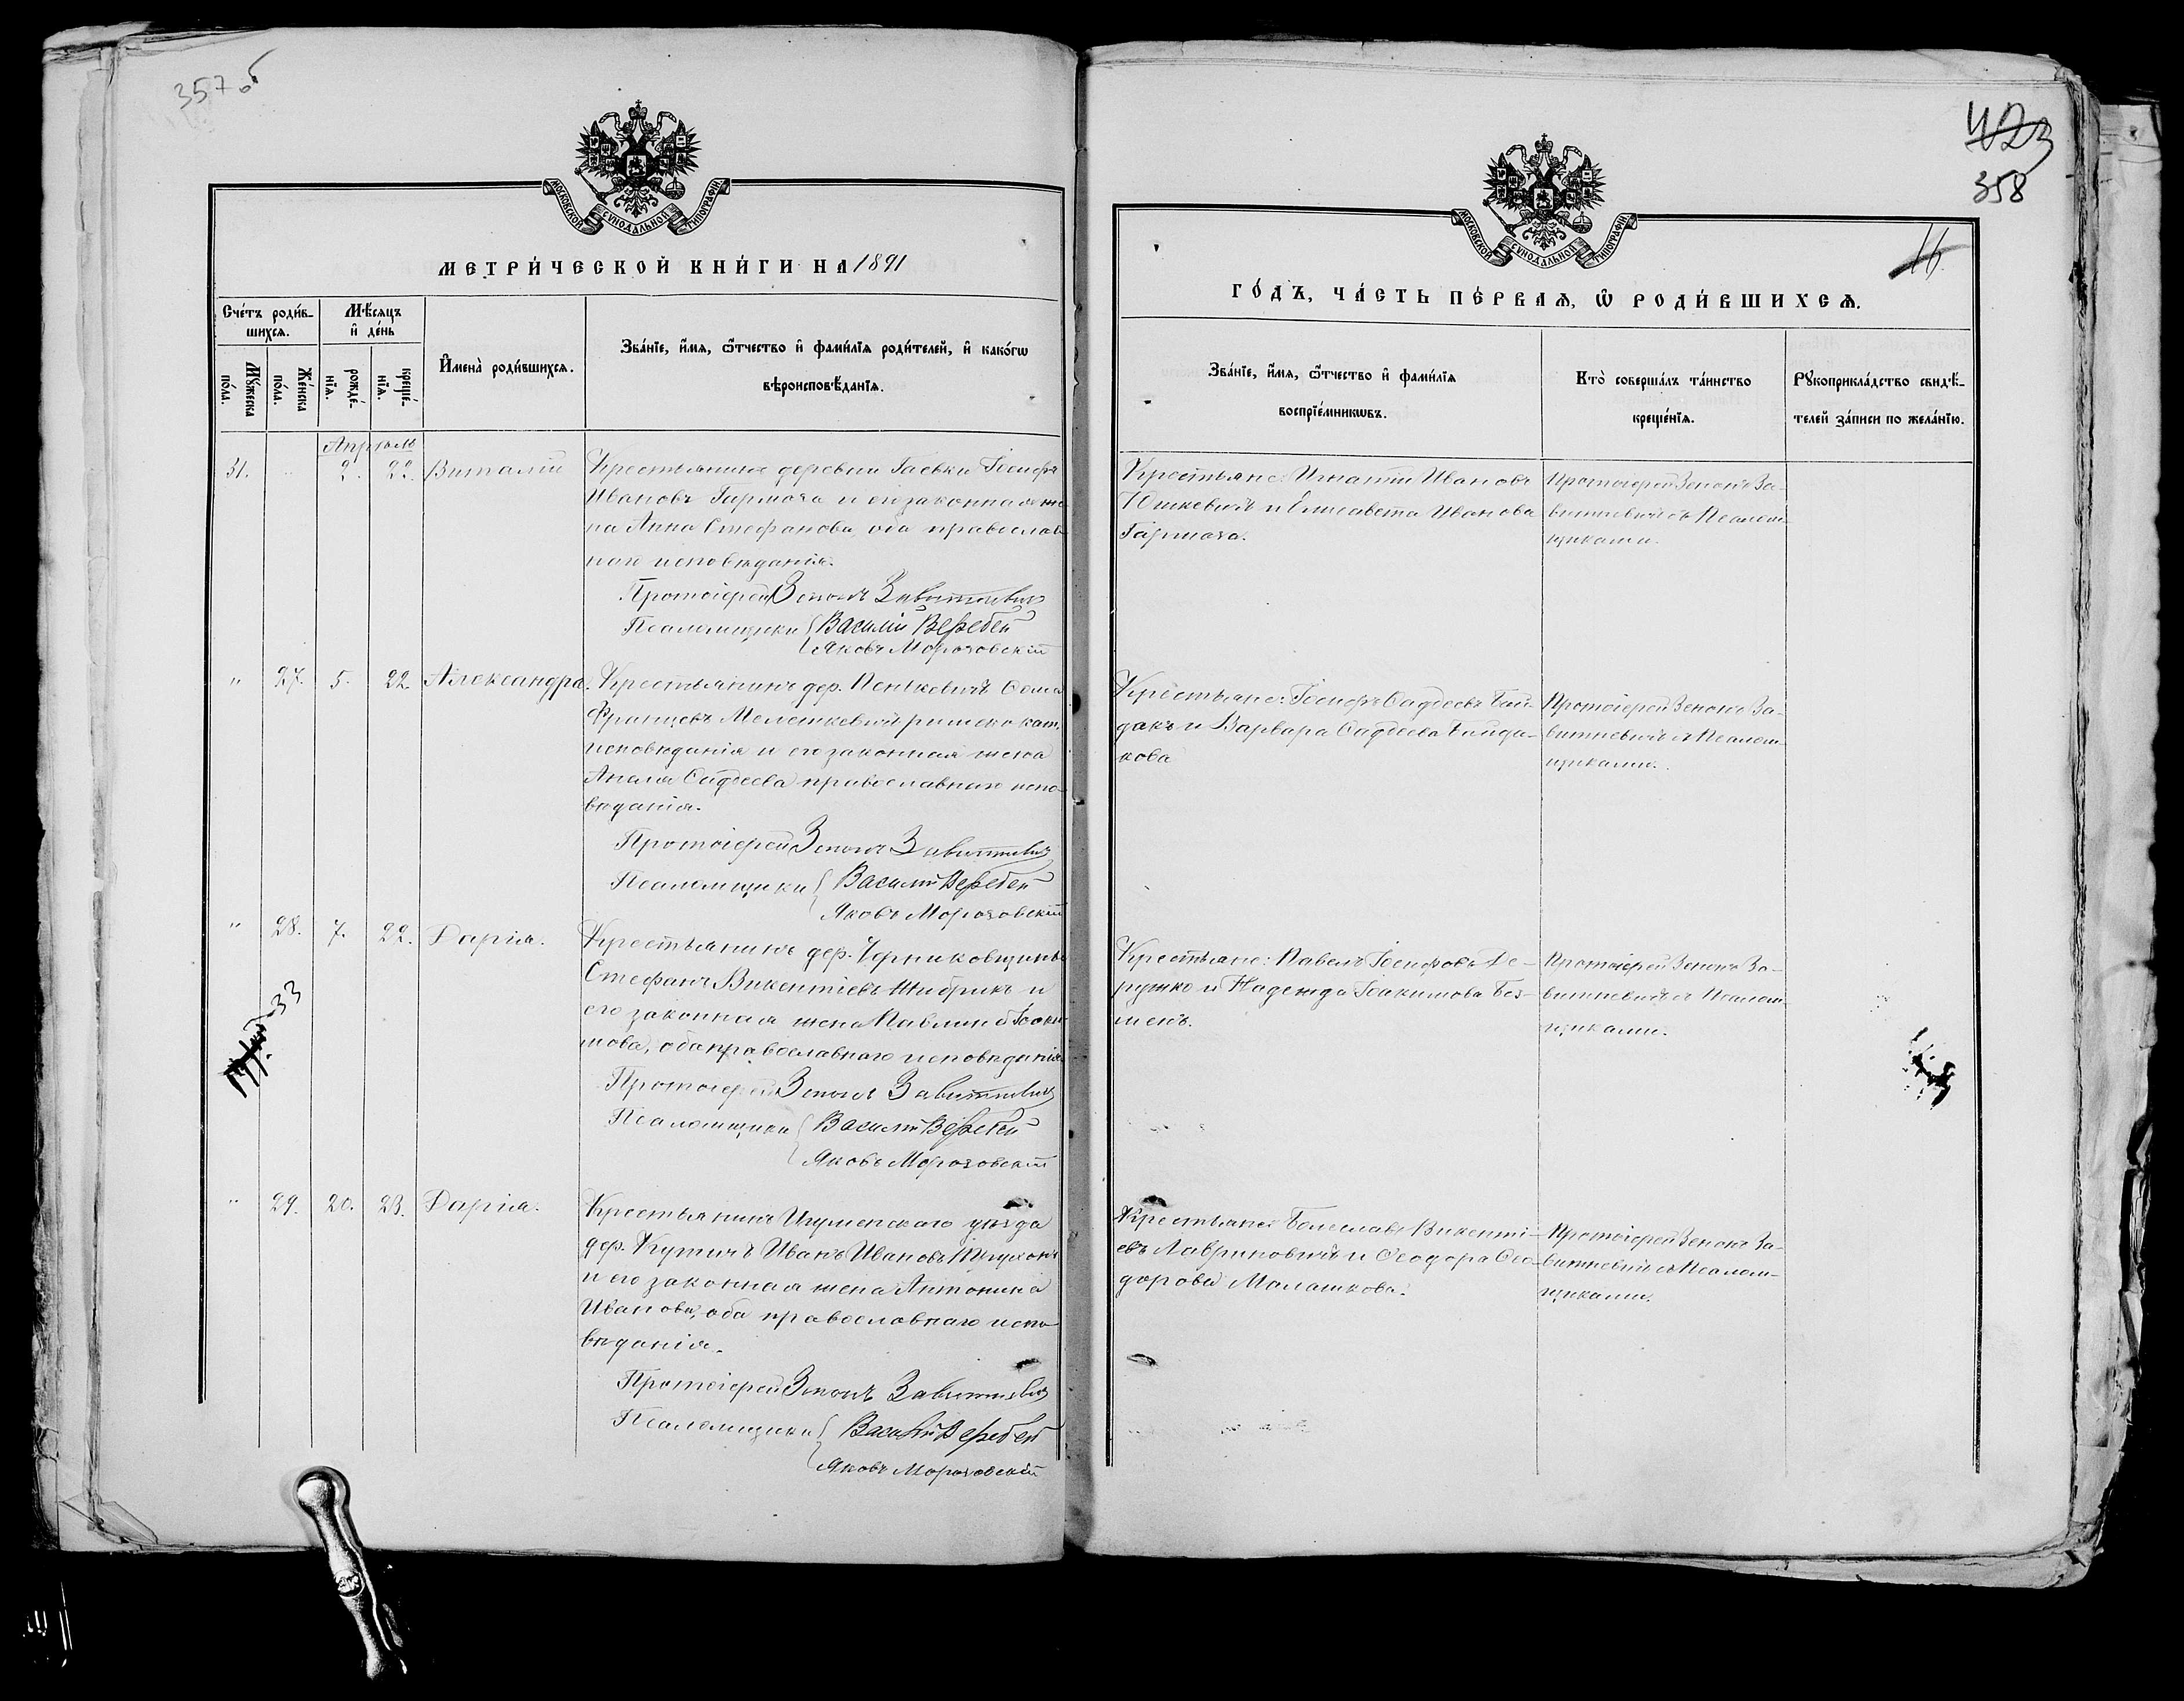 357 об
МОСКОВСКОЙ СѴНОДАЛЬНОЙ ТИПОГРАФІИ
МЕТРИ́ЧЕСКОЙ КНИ́ГИ НА 1891
Сче́тъ роди́в-
шихсѧ.
Мѣ́сѧцъ
и҆ де́нь
Мꙋ́жеска
по́ла.
Же́нска
по́ла.
рожде́-
нїѧ.
креще́-
нїѧ.
И҆мена̀ роди́вшихсѧ.
Зва́нїе, и҆́мѧ, ѻ҆́тчество и҆ фами́лїѧ роди́телей, и҆ како́гѡ
вѣроисповѣ́данїѧ.
Апрѣль
31. " 2. 22. Виталій
Крестьянинъ деревни Гаевки Іосифъ
Ивановъ Гармоза и его законная же-
на Анна Стефанова, оба православ-
наго исповѣданія.
Протоіерей Зенонъ Завитневичъ
Псаломщики { Василій Веребей
Яковъ Морозовскій
" 27. 5. 22. Александра.
Крестьянинъ дер. Пенькевичъ Ѳома
Францевъ Мелешкевичъ римско-кат.
исповѣданія и его законная жена
Анеля Ѳаддеева православнаго испо-
вѣданія.
Протоіерей Зенонъ Завитневичъ
Псаломщики { Василій Веребей
Яковъ Морозовскій
" 28. 7. 22. Дарія.
Крестьянинъ дер. Черниковщины
Стефанъ Викентіевъ Жибрикъ и
его законная жена Павлина Іоаки-
мова, оба православнаго исповѣданія
33
Протоіерей Зенонъ Завитневичъ
Псаломщики { Василій Веребей
Яковъ Морозовскій
" 29. 20. 23. Дарія.
Крестьянинъ Игуменскаго уѣзда
дер. Кутичъ Иванъ Ивановъ
и его законная жена Антонина
Иванова, оба православнаго испо-
вѣданія.
Протоіерей Зенонъ Завитневичъ
Псаломщики { Василій Веребей
Яковъ Морозовскій
423
358
16.
МОСКОВСКОЙ СѴНОДАЛЬНОЙ ТИПОГРАФІИ
ГО́ДЪ, ЧА́СТЬ ПЕ́РВАѦ, Ѡ҆ РОДИ́ВШИХСѦ.
Зва́нїе, и҆́мѧ, ѻ҆́тчество и҆ фами́лїѧ
воспрїе́мникѡвъ.
Кто̀ соверша́лъ та́инство
креще́нїѧ.
Рꙋкоприкла́дство свидѣ́-
телей за́писи по жела́нїю.
Крестьяне: Игнатій Ивановъ
Юшкевичъ и Елисавета Иванова
Гармоза.
Протоіерей Зенонъ За-
витневичъ съ Псалом-
щиками.
Крестьяне: Іосифъ Ѳаддеевъ Бай-
дакъ и Варвара Ѳаддеева Байда-
кова
Протоіерей Зенонъ За-
витневичъ съ Псалом-
щиками.
Крестьяне: Павелъ Іосифовъ Де-
ружко и Надежда Іоакимова Без-
менъ.
Протоіерей Зенонъ За-
витневичъ съ Псалом-
щиками.
Крестьяне: Болеславъ Викенті-
евъ Лавриновичъ и Ѳеодора Ѳео-
дорова Малашкова.
Протоіерей Зенонъ За-
витневичъ съ Псалом-
щиками.